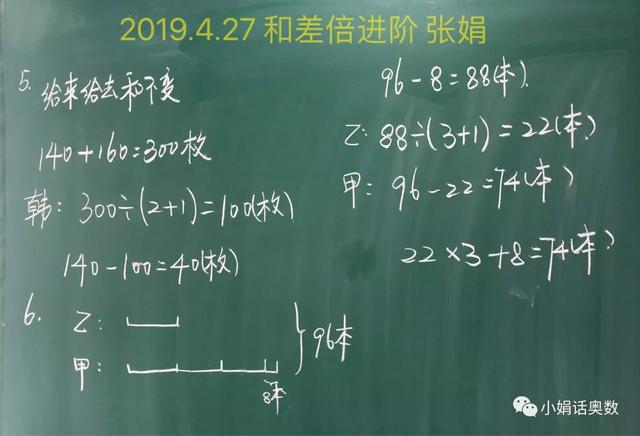 2019.4.27 和差倍进阶 张娟
5. 给来给去和不变
140+160=300枚
韩: 300÷(2+1)=100(枚)
140-100=40(枚)
6. 乙:
甲:
8本
}96本
96-8=88(本)
乙: 88÷(3+1)=22(本)
甲: 96-22=74(本)
22×3+8=74(本)
小娟话奥数